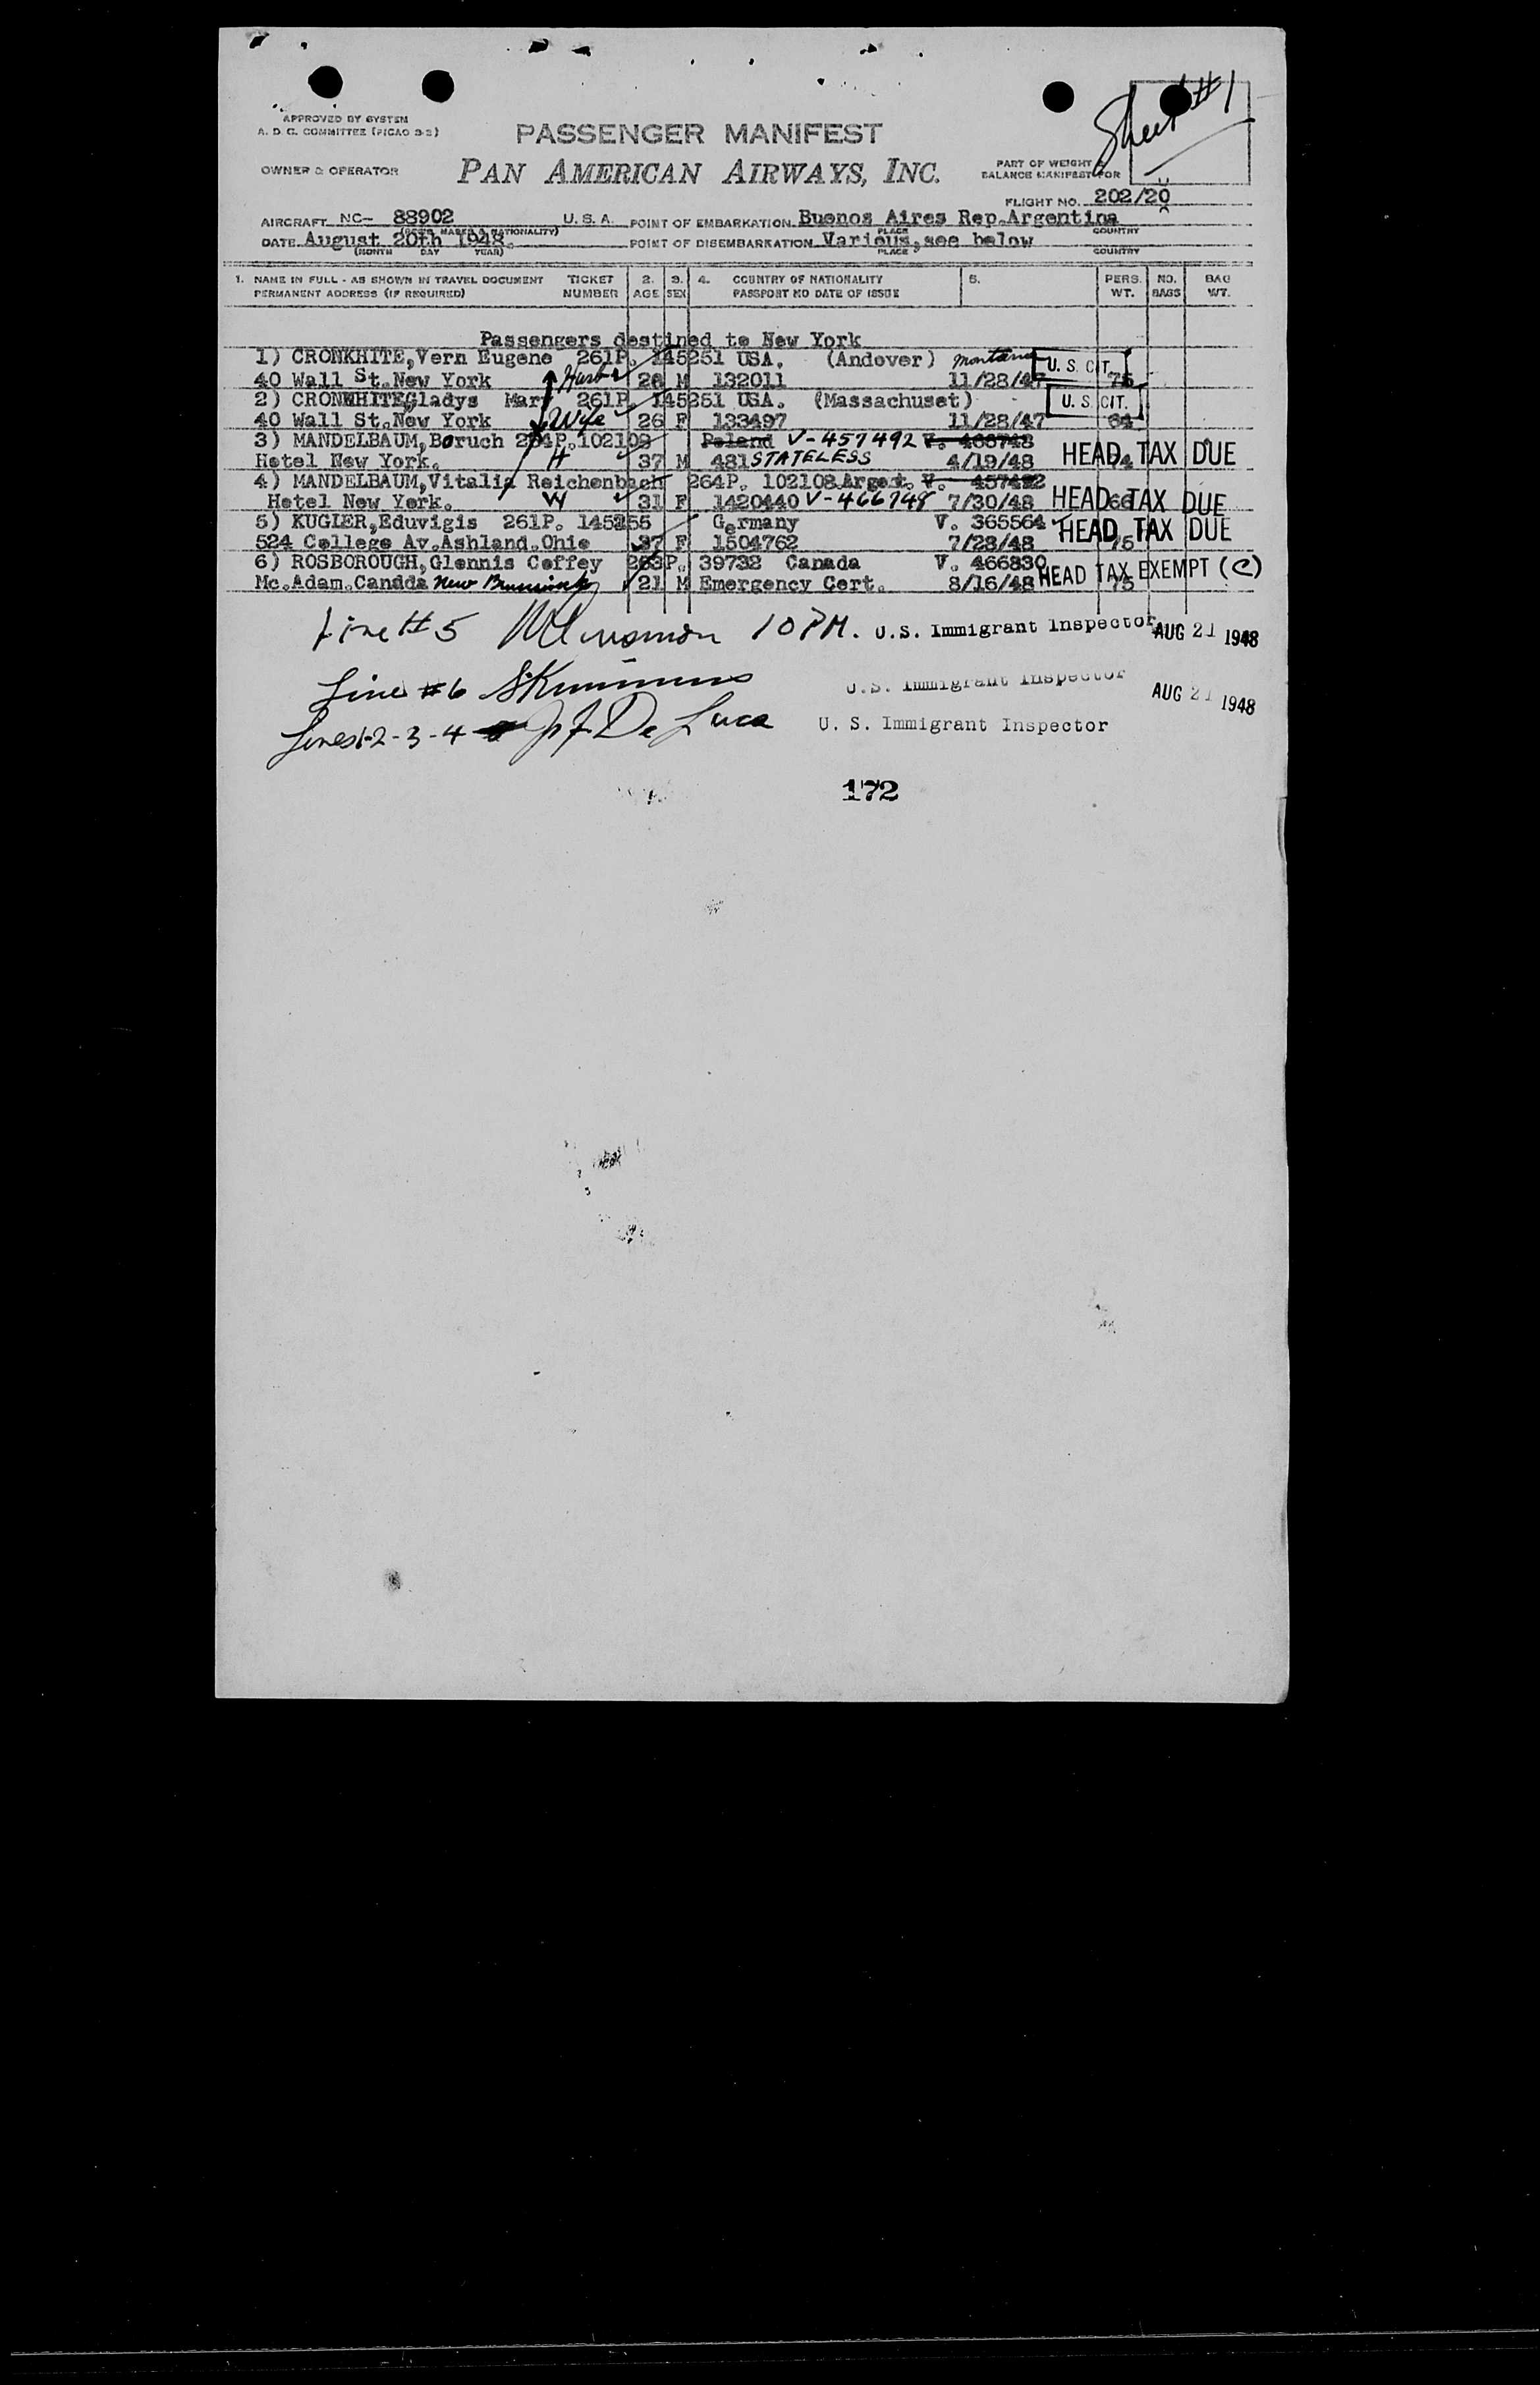 Sheet #1
APPROVED BY SYSTEM
A. D. C. COMMITTEE (PICAO 3-2)
PASSENGER MANIFEST
OWNER & OPERATOR PAN AMERICAN AIRWAYS, INC. PART OF WEIGHT & BALANCE MANIFEST FOR
FLIGHT NO. 202/20
AIRCRAFT NC- 88902 U. S. A. POINT OF EMBARKATION Buenos Aires Rep.Argentina
(REG'N MARKS & NATIONALITY) PLACE COUNTRY
DATE August 20th 1948. POINT OF DISEMBARKATION Various,see below
(MONTH DAY YEAR) PLACE COUNTRY
1. NAME IN FULL - AS SHOWN IN TRAVEL DOCUMENT TICKET 2. 3. 4. COUNTRY OF NATIONALITY 5. PERS. NO. BAG
PERMANENT ADDRESS (IF REQUIRED) NUMBER AGE SEX PASSPORT NO DATE OF ISSUE WT. BAGS WT.
Passengers destined to New York
1) CRONKHITE,Vern Eugene 261P. 145251 USA. (Andover) Montana U. S. CIT.
40 Wall St.New York Husb 26 M 132011 11/28/47 75
2) CRONKHITE,Gladys Mary 261P. 145251 USA. (Massachuset) U. S. CIT.
40 Wall St.New York Wife 26 F 133497 11/28/47 64
3) MANDELBAUM,Boruch 264P.102109 Poland V-457492 V. 466748
Hotel New York. H 37 M 481 STATELESS 4/19/48 HEAD TAX DUE
4) MANDELBAUM,Vitalia Reichenbach 264P. 102108 Argent. V. 457492
Hotel New York. W 31 F 1420440 V-466748 7/30/48 66 HEAD TAX DUE
5) KUGLER,Eduvigis 261P. 145255 Germany V. 365564 HEAD TAX DUE
524 College Av.Ashland.Ohio 37 F 1504762 7/28/48 75
6) ROSBOROUGH,Glennis Coffey 263P. 39732 Canada V. 466830
Mc.Adam.Canada New Brunswick 21 M Emergency Cert. 8/16/48 75 HEAD TAX EXEMPT (C)
Line #5 10 PM. U.S. Immigrant Inspector AUG 21 1948
Line #6 U.S. Immigrant Inspector AUG 21 1948
Lines 1-2-3-4 De Luca U. S. Immigrant Inspector
172